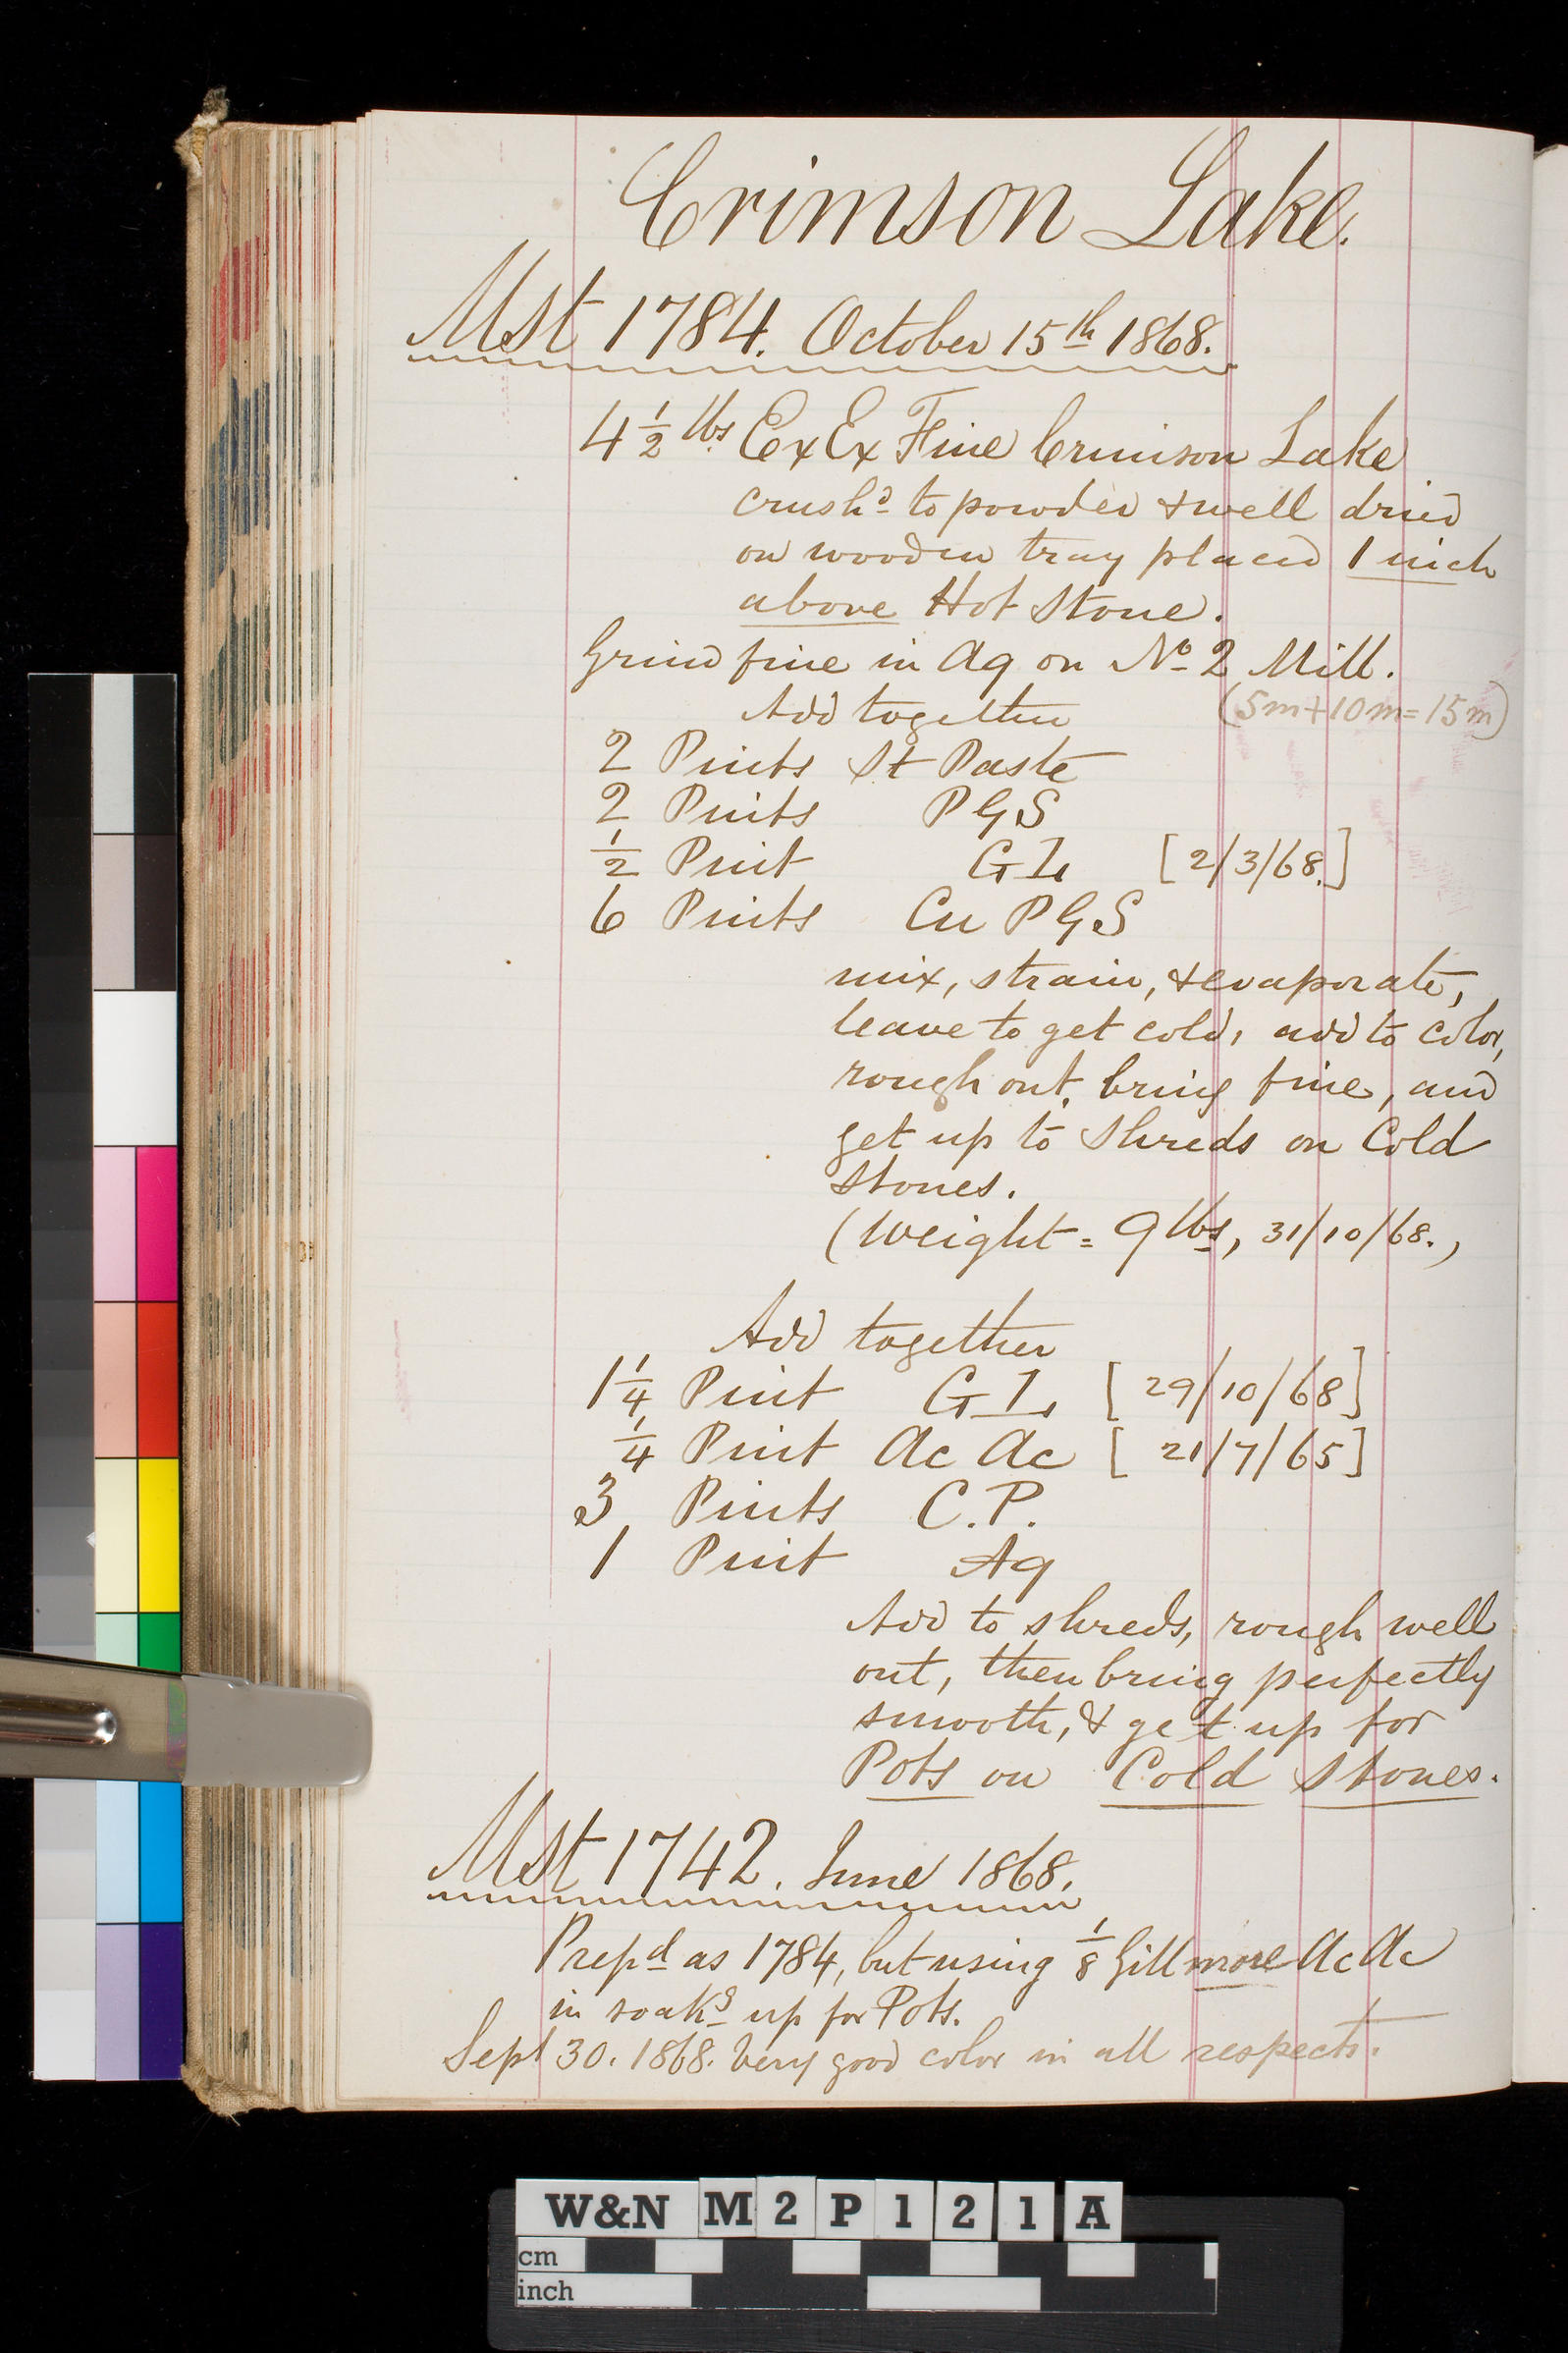 Crimson Lake.
Mst 1784. October 15th 1868.
4 1/2 lbs Ex Ex Fine Crimson Lake
crushd to powder & well dried
on wooden tray placed 1 inch
above Hot Stone.
Grind fine in Aq on No 2 Mill.
Add together (5m+10m=15m)
2 Pints St Paste
2 Pints PGS
1/2 Pint GL [2/3/68.]
6 Pints Cu PGS
mix, strain, & evaporate,
leave to get cold, add to color,
rough out, bring fine, and
get up to Shreds on Cold
Stones.
(Weight = 9 lbs, 31/10/68.)
Add together
1 1/4 Pint GL [29/10/68]
1/4 Pint Ac Ac [21/7/65]
3 Pints C.P.
1 Pint Aq
Add to shreds, rough well
out, then bring perfectly
smooth, & get up for
Pots on Cold Stones.
Mst 1742. June 1868.
Prepd as 1784, but using 1/8 Gill more Ac Ac
in soakg up for Pots.
Sept 30. 1868. Very good color in all respects.
W&N M2P121A
cm
inch